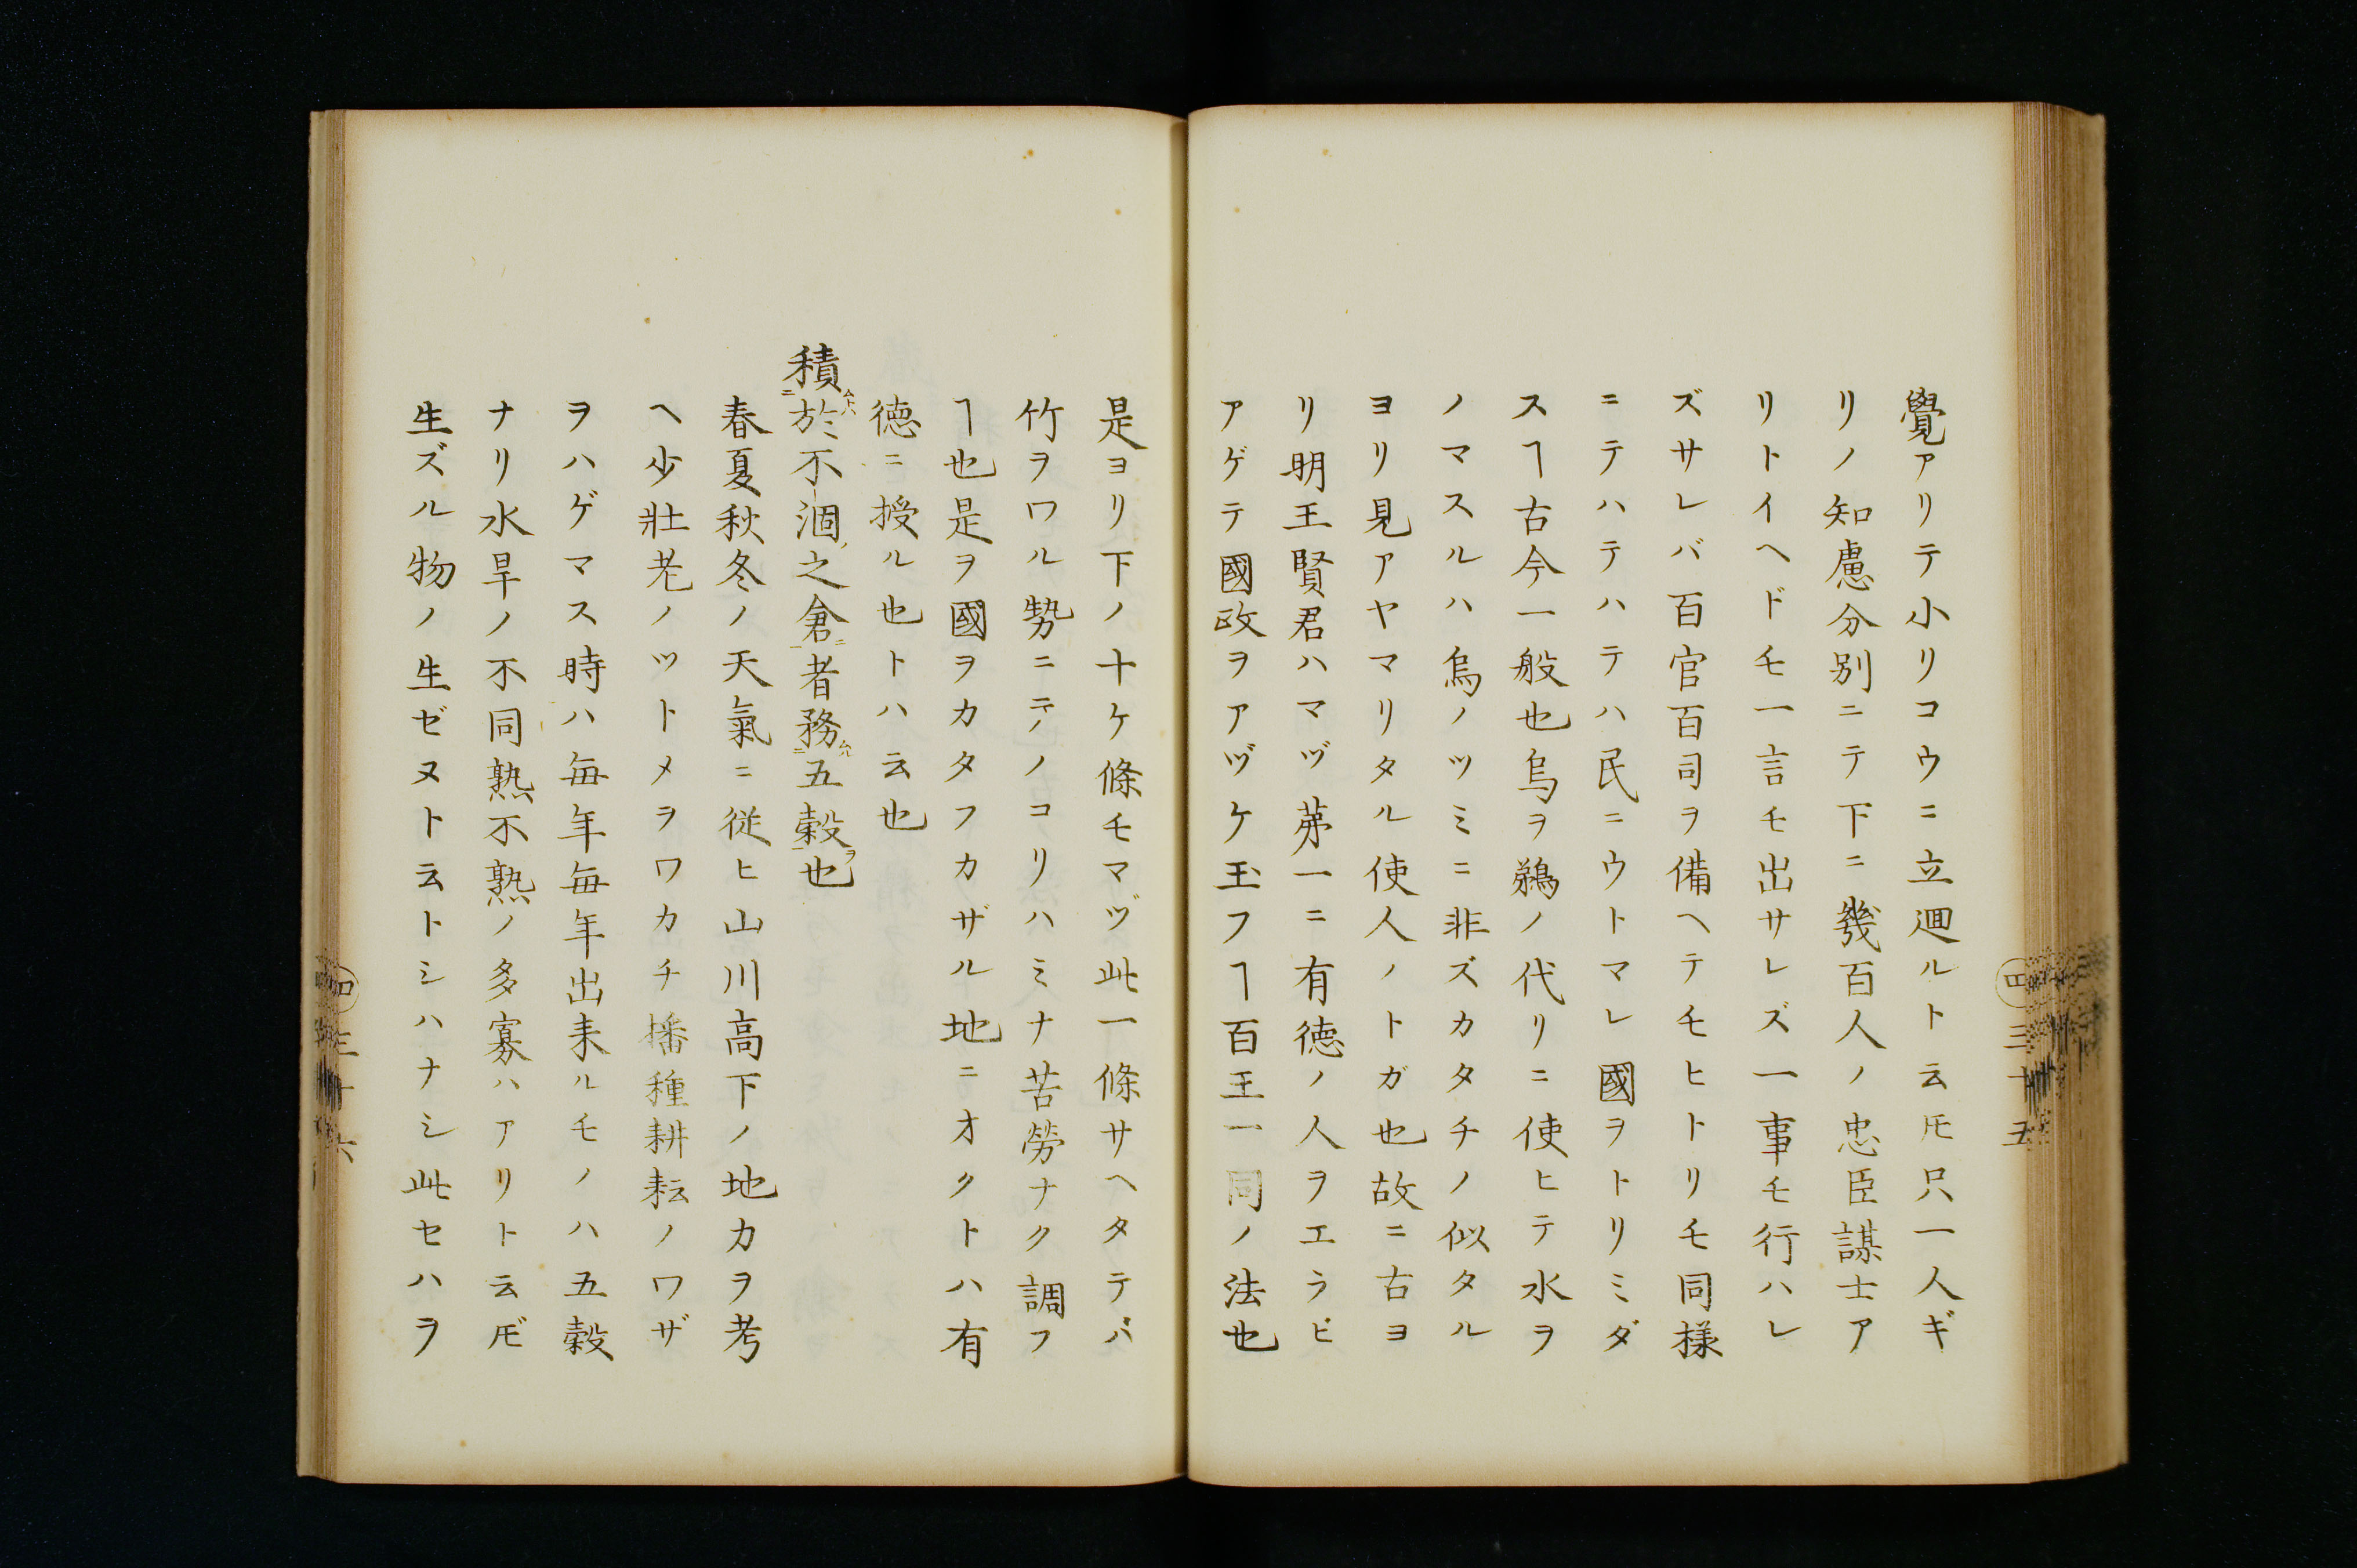 覺アリテ小リコウニ立𢌞ルト云𪜈只一人ギ
リノ知慮分別ニテ下ニ幾百人ノ忠臣謀士ア
リトイヘドモ一言モ出サレズ一事モ行ハレ
ズサレバ百官百司ヲ備ヘテモヒトリモ同樣
ニテハテハテハ民ニウトマレ國ヲトリミダ
スヿ古今一般也烏ヲ鵜ノ代リニ使ヒテ水ヲ
ノマスルハ烏ノツミニ非ズカタチノ似タル
ヨリ見アヤマリタル使人ノトガ也故ニ古ヨ
リ明王賢君ハマヅ第一ニ有徳ノ人ヲエラビ
アゲテ國政ヲアヅケ玉フヿ百王一同ノ法也
是ヨリ下ノ十ケ條モマヅ此一條サヘタテバ
竹ヲワル勢ニテノコリハミナ苦勞ナク調フ
ヿ也是ヲ國ヲカタフカザル地ニオクトハ有
徳ニ授ル也トハ云也
積於不涸之倉者務五穀也
春夏秋冬ノ天氣ニ從ヒ山川高下ノ地力ヲ考
ヘ少壯老ノツトメヲワカチ播種耕耘ノワザ
ヲハゲマス時ハ毎年毎年出来ルモノハ五穀
ナリ水旱ノ不同熟不熟ノ多寡ハアリト云𪜈
生ズル物ノ生ゼヌト云トシハナシ此セハヲ
四 三十五
四 三十六